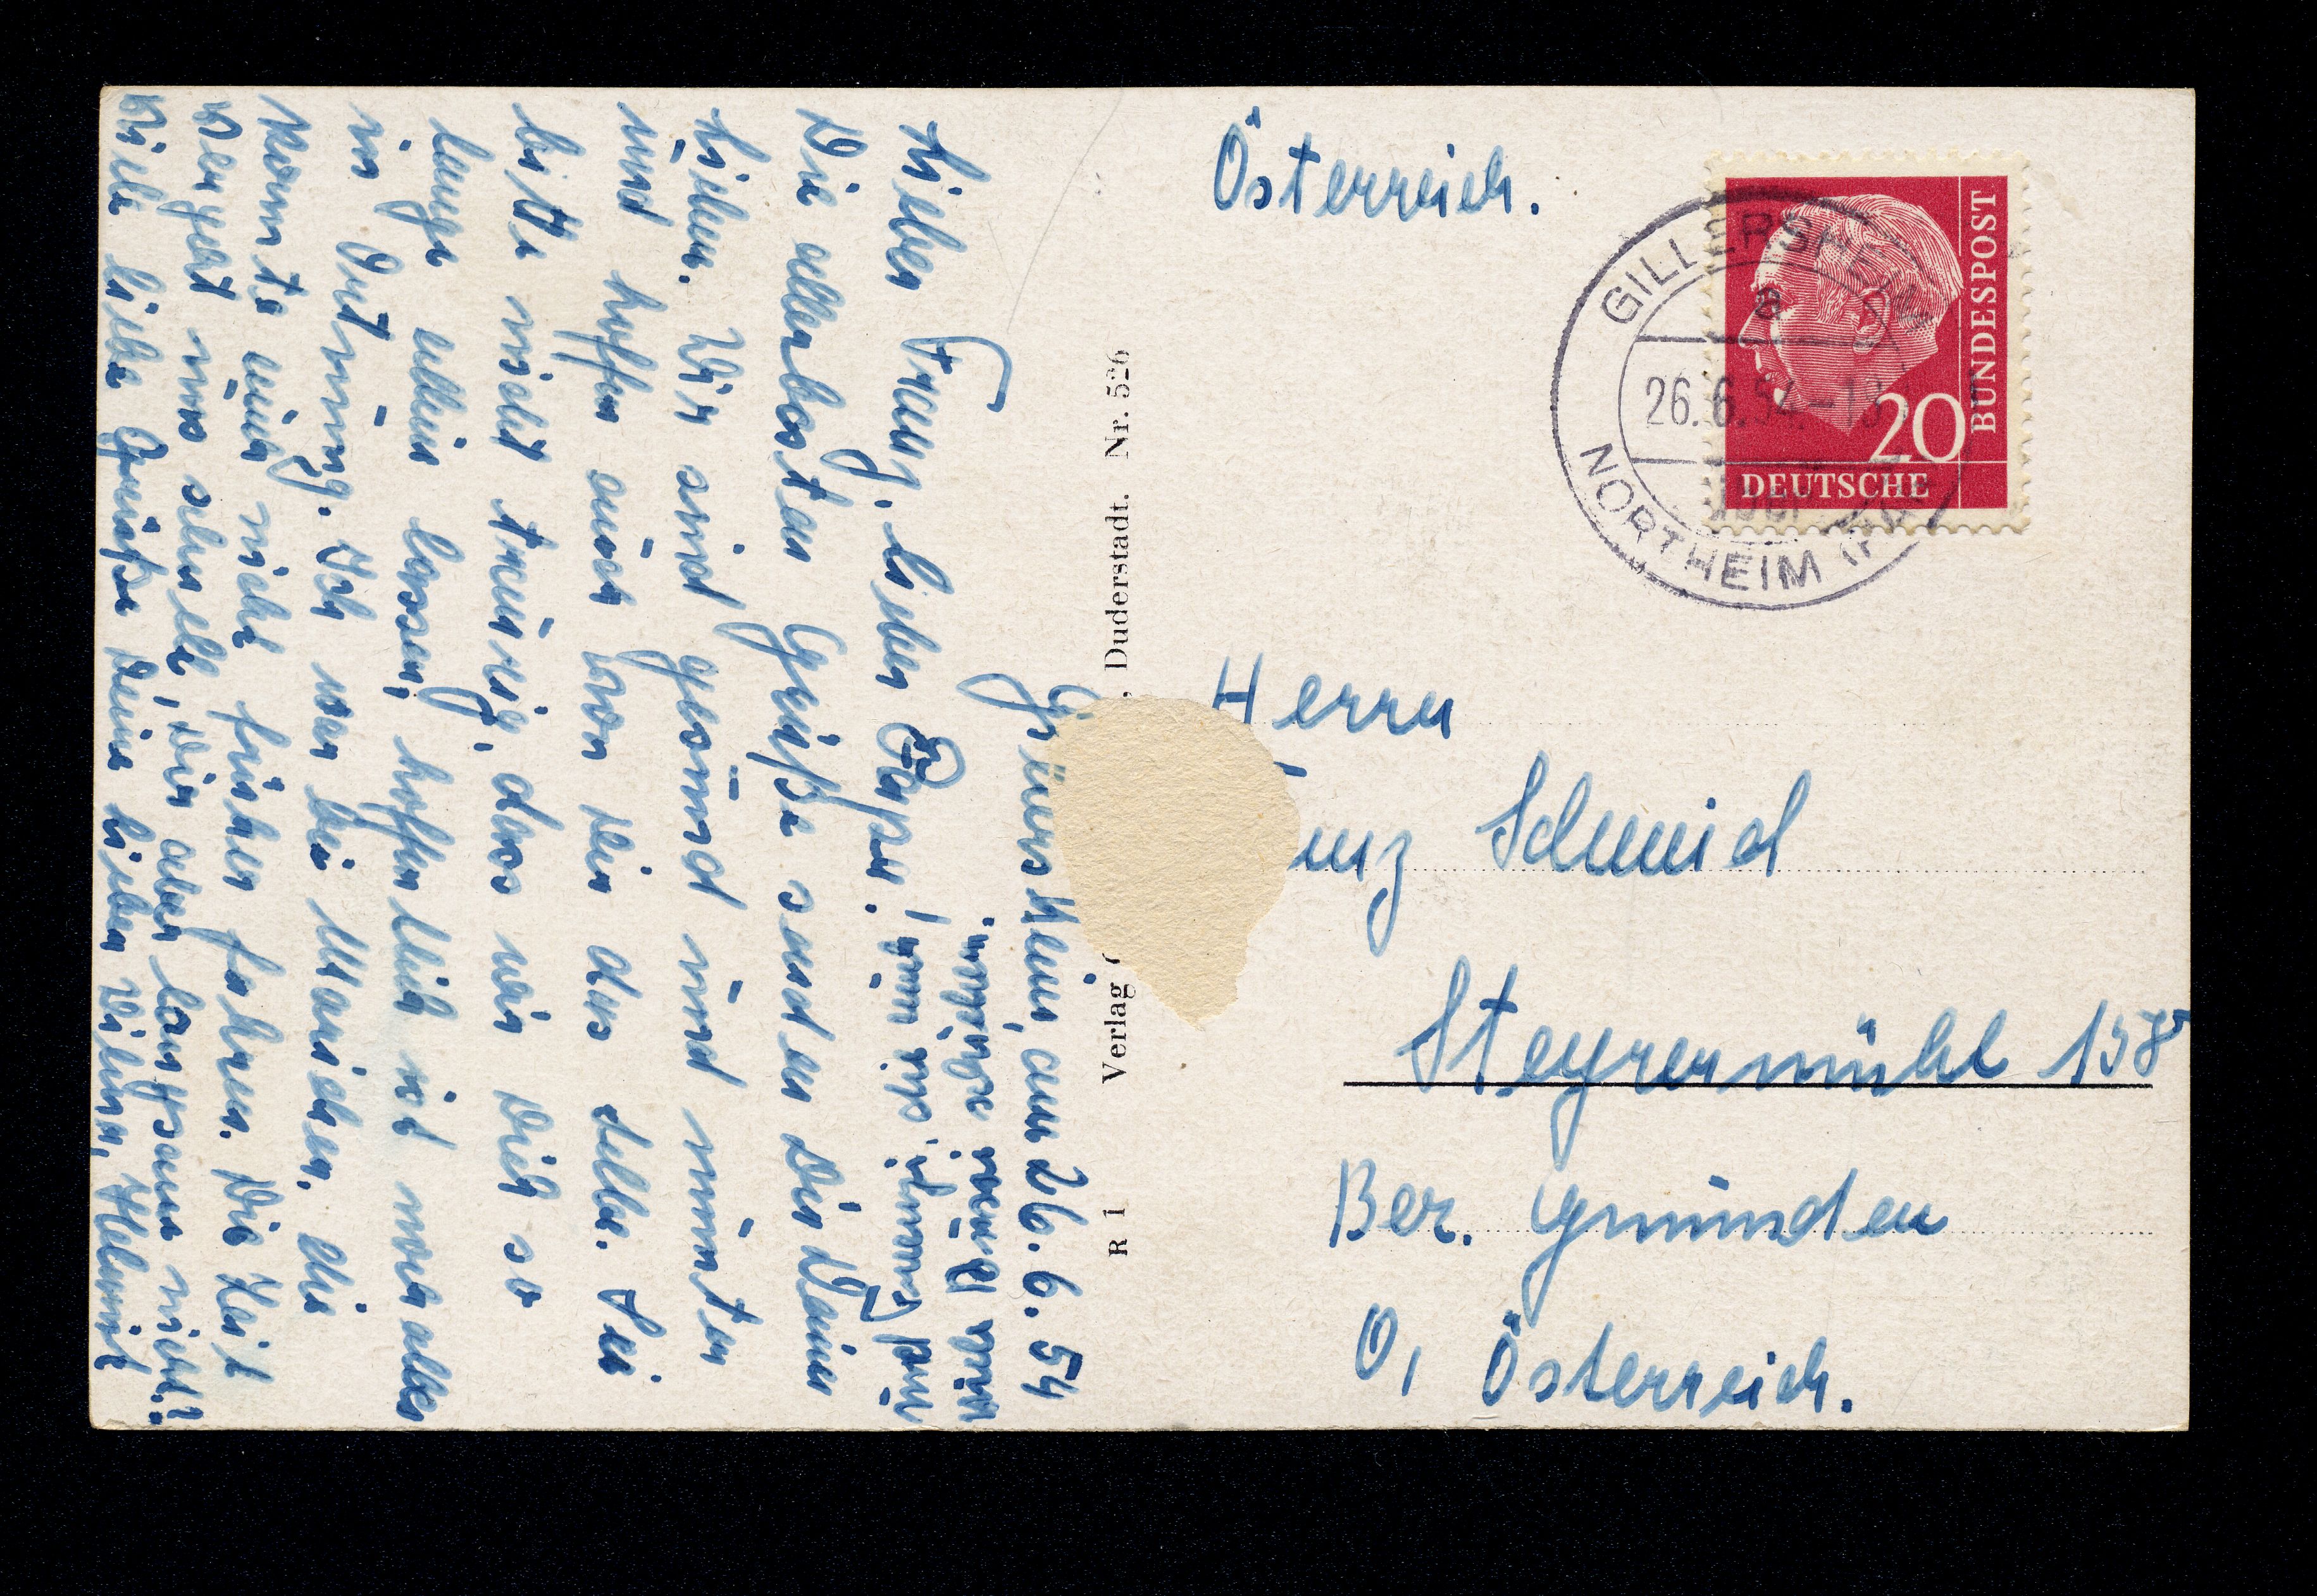 Österreich.
GILLERSHEIM
a
26.6.54.-18
NORTHEIM
20
BUNDESPOST
DEUTSCHE
Herrn
nz Schmid
Steyrermühl 158
Bez. Gmünden
O, Österreich.
R 1 Verlag , Duderstadt. Nr. 526
am 26.6.54
Lieber Franz, lieber Papa!
Die allerbesten Grüße senden Dir Deine
Lieben. Wir sind gesund und munter
und hoffen auch von Dir das selbe. Sei
bitte nicht traurig, dass wir Dich so
lange allein lassen, hoffentlich ist wor alles
in Ordnung. Ich war bei Manschen, die
konnte auch nicht früher fahren. Die Zeit
vergeht uns schnell, Dir aber langsam nicht?
Viele liebe Grüße Deine lieben Helmut